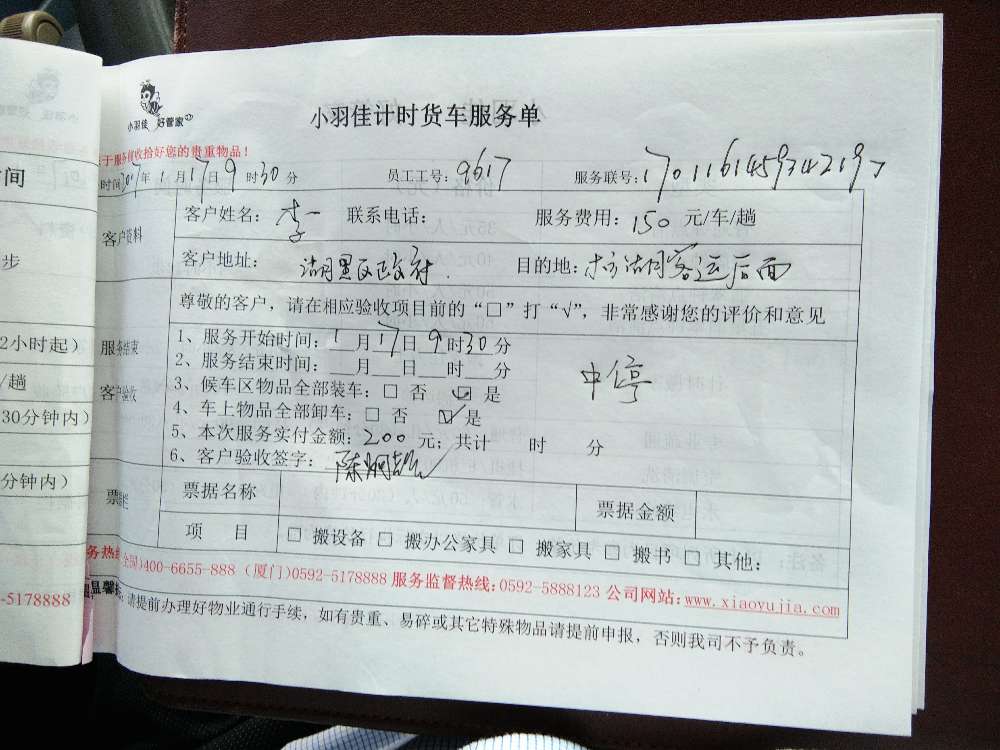 小羽佳 好管家
小羽佳计时货车服务单
于服务前收拾好您的贵重物品！
时间：2017年1月17日9时30分 员工工号：9617 服务联号：
客户资料
客户姓名：李 联系电话： 服务费用：150元/车/趟
客户地址：湖里区政府. 目的地：湖客运后面
尊敬的客户，请在相应验收项目前的“□”打“√”，非常感谢您的评价和意见
服务结束
客户验收
1、服务开始时间：1月17日9时30分
2、服务结束时间：__月__日__时__分
3、候车区物品全部装车：□ 否 ☑ 是
4、车上物品全部卸车：□ 否 ☑ 是
5、本次服务实付金额：200元；共计 时 分
6、客户验收签字：陈
中停
票据名称 票据金额
项 目 □ 搬设备 □ 搬办公家具 □ 搬家具 □ 搬书 □ 其他：
务热线 全国)400-6655-888 (厦门)0592-5178888 服务监督热线：0592-5888123 公司网站：www.xiaoyujia.com
温馨 请提前办理好物业通行手续，如有贵重、易碎或其它特殊物品请提前申报，否则我司不予负责。
时间
步
2小时起)
/趟
30分钟内)
分钟内)
-5178888